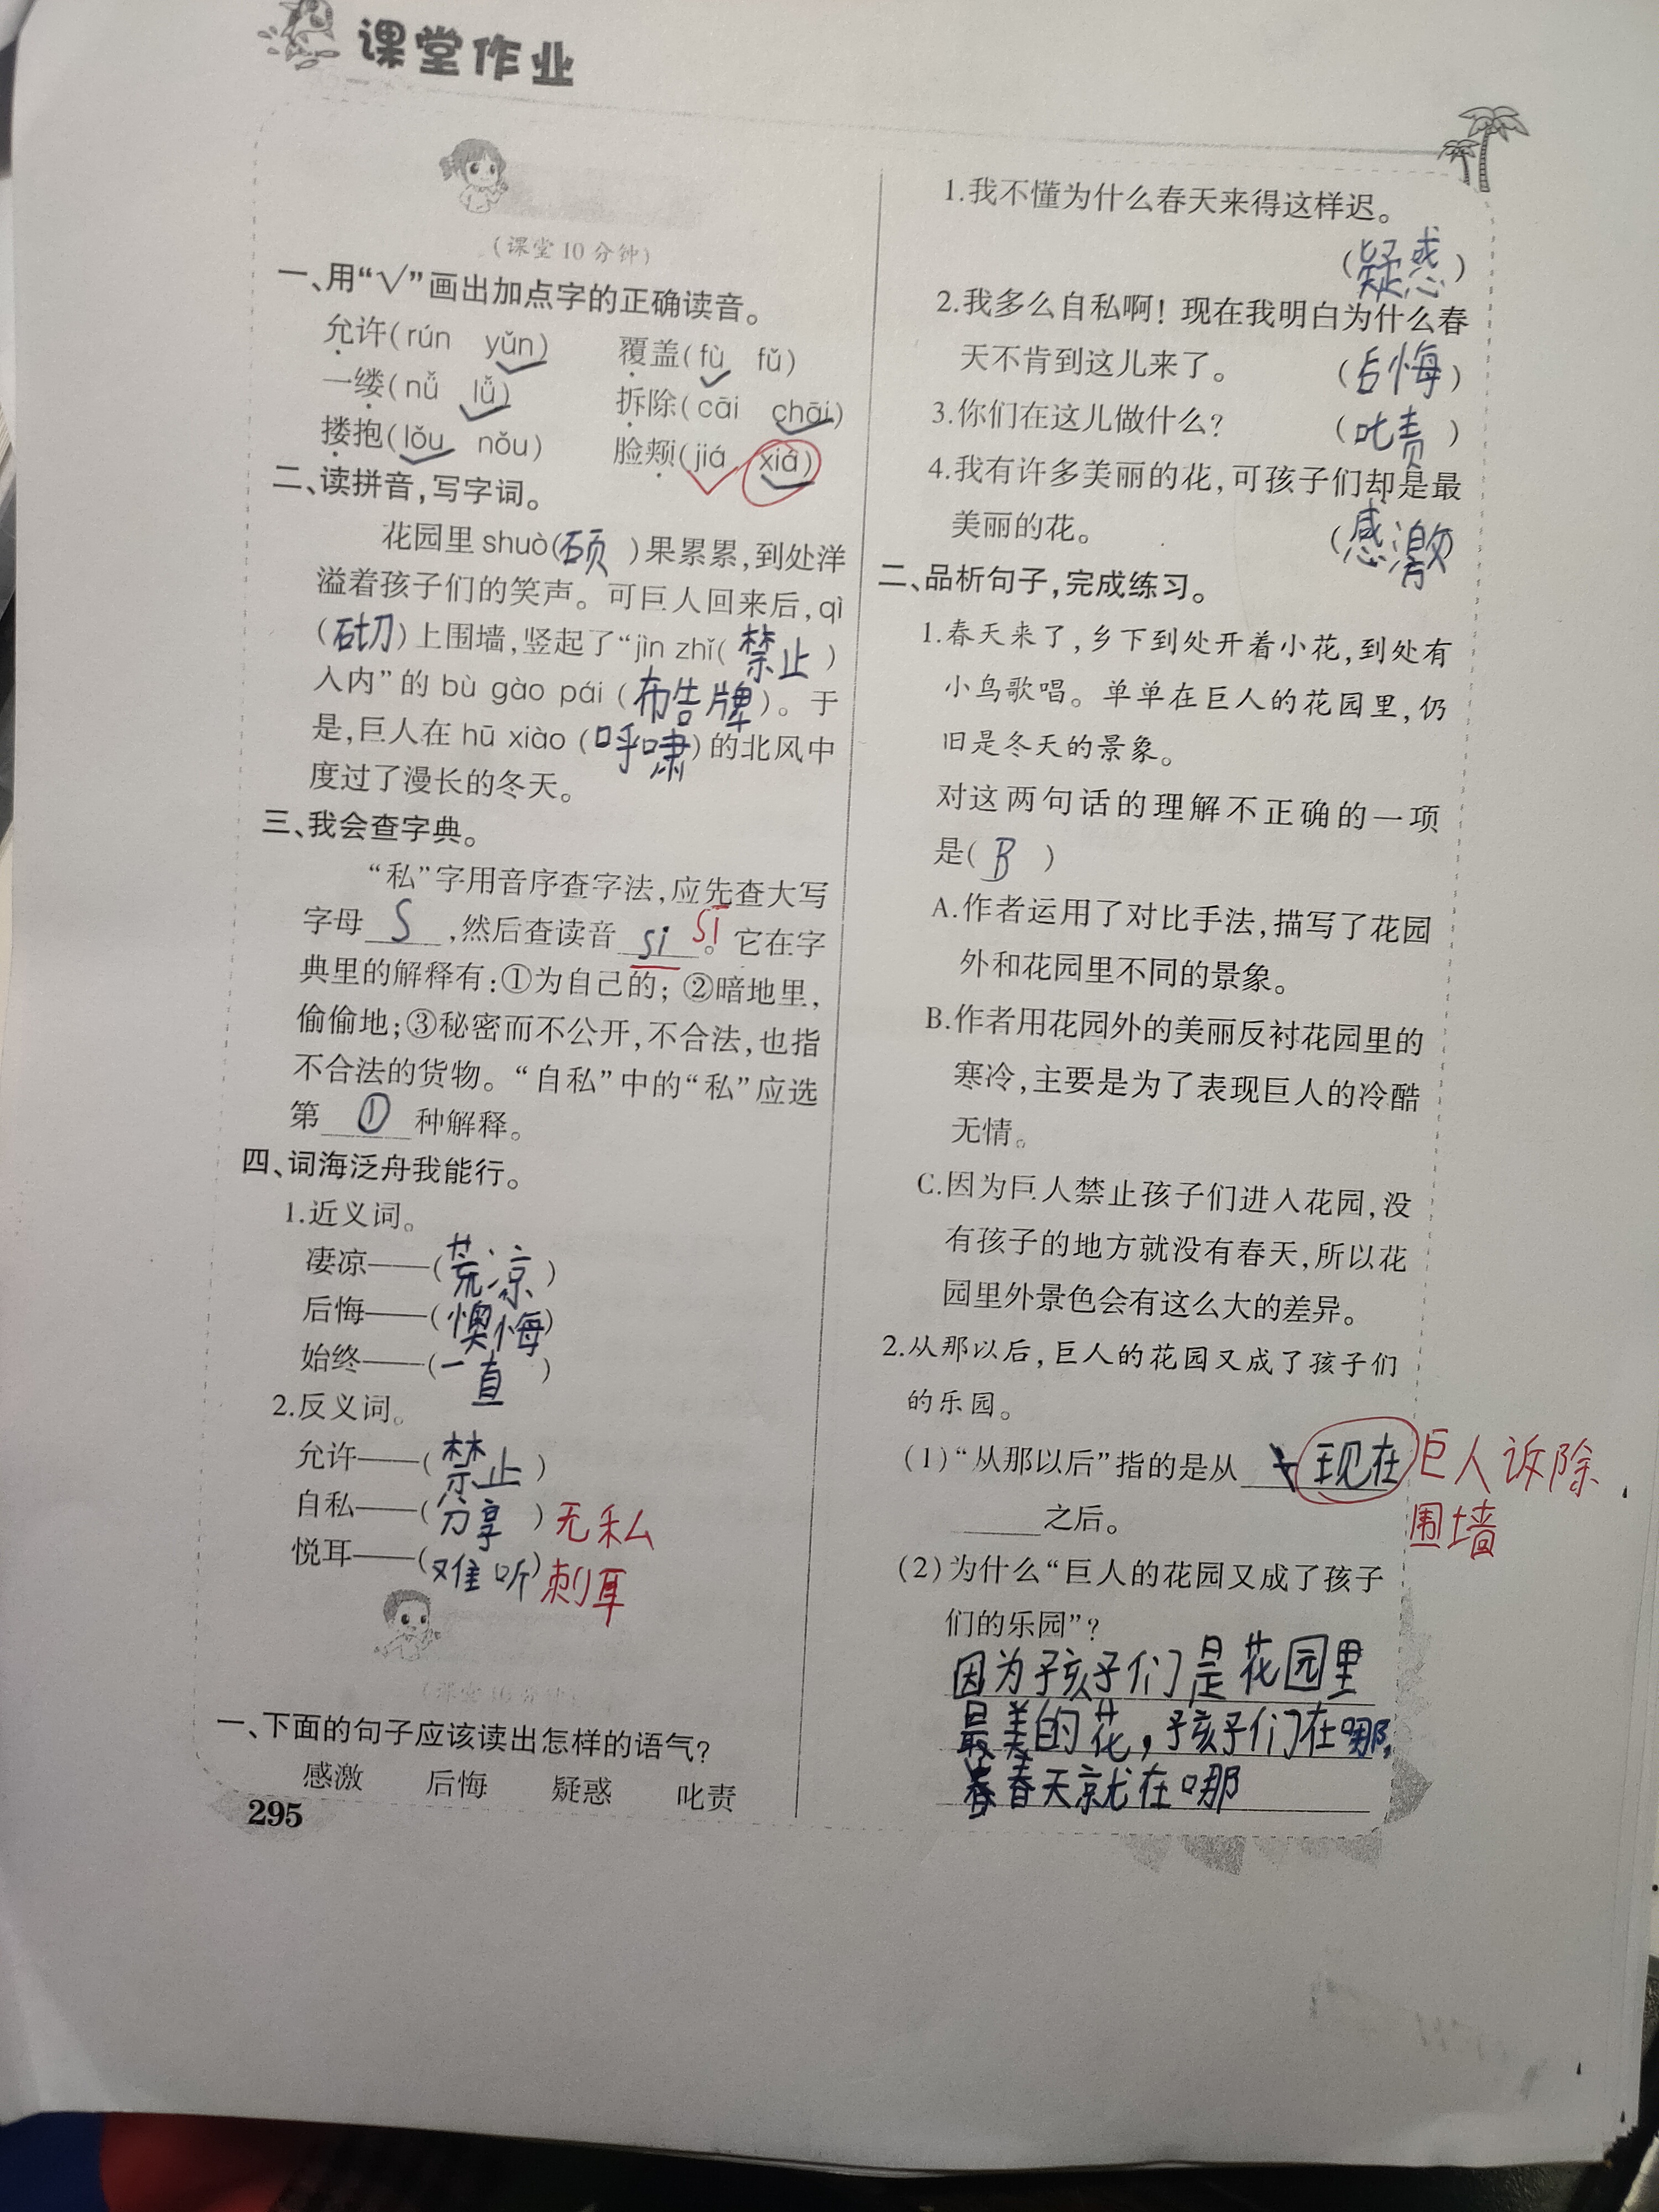 课堂作业
(课堂10分钟)
一、用“√”画出加点字的正确读音。
允许(rún yǔn) 覆盖(fù fǔ)
一缕(nǚ lǚ) 拆除(cāi chāi)
搂抱(lǒu nǒu) 脸颊(jiá xiá)
二、读拼音,写字词。
花园里 shuò(硕)果累累,到处洋
溢着孩子们的笑声。可巨人回来后,qì
(砌)上围墙,竖起了“jìn zhǐ(禁止)
入内”的 bù gào pái (布告牌)。于
是,巨人在 hū xiào (呼啸)的北风中
度过了漫长的冬天。
三、我会查字典。
“私”字用音序查字法,应先查大写
字母 S ,然后查读音 si sī 。它在字
典里的解释有:①为自己的; ②暗地里,
偷偷地;③秘密而不公开,不合法,也指
不合法的货物。“自私”中的“私”应选
第 ① 种解释。
四、词海泛舟我能行。
1.近义词。
凄凉——(荒凉)
后悔——(懊悔)
始终——(一直)
2.反义词。
允许——(禁止)
自私——(分享)无私
悦耳——(难听)刺耳
(课堂10分钟)
一、下面的句子应该读出怎样的语气?
感激 后悔 疑惑 叱责
295
1.我不懂为什么春天来得这样迟。
(疑惑)
2.我多么自私啊! 现在我明白为什么春
天不肯到这儿来了。 (后悔)
3.你们在这儿做什么? (叱责)
4.我有许多美丽的花,可孩子们却是最
美丽的花。 (感激)
二、品析句子,完成练习。
1.春天来了,乡下到处开着小花,到处有
小鸟歌唱。单单在巨人的花园里,仍
旧是冬天的景象。
对这两句话的理解不正确的一项
是( B )
A.作者运用了对比手法,描写了花园
外和花园里不同的景象。
B.作者用花园外的美丽反衬花园里的
寒冷,主要是为了表现巨人的冷酷
无情。
C.因为巨人禁止孩子们进入花园,没
有孩子的地方就没有春天,所以花
园里外景色会有这么大的差异。
2.从那以后,巨人的花园又成了孩子们
的乐园。
(1)“从那以后”指的是从 现在 巨人诉除
之后。 围墙
(2)为什么“巨人的花园又成了孩子
们的乐园”?
因为孩子们是花园里
最美的花,孩子们在哪,
春天就在哪